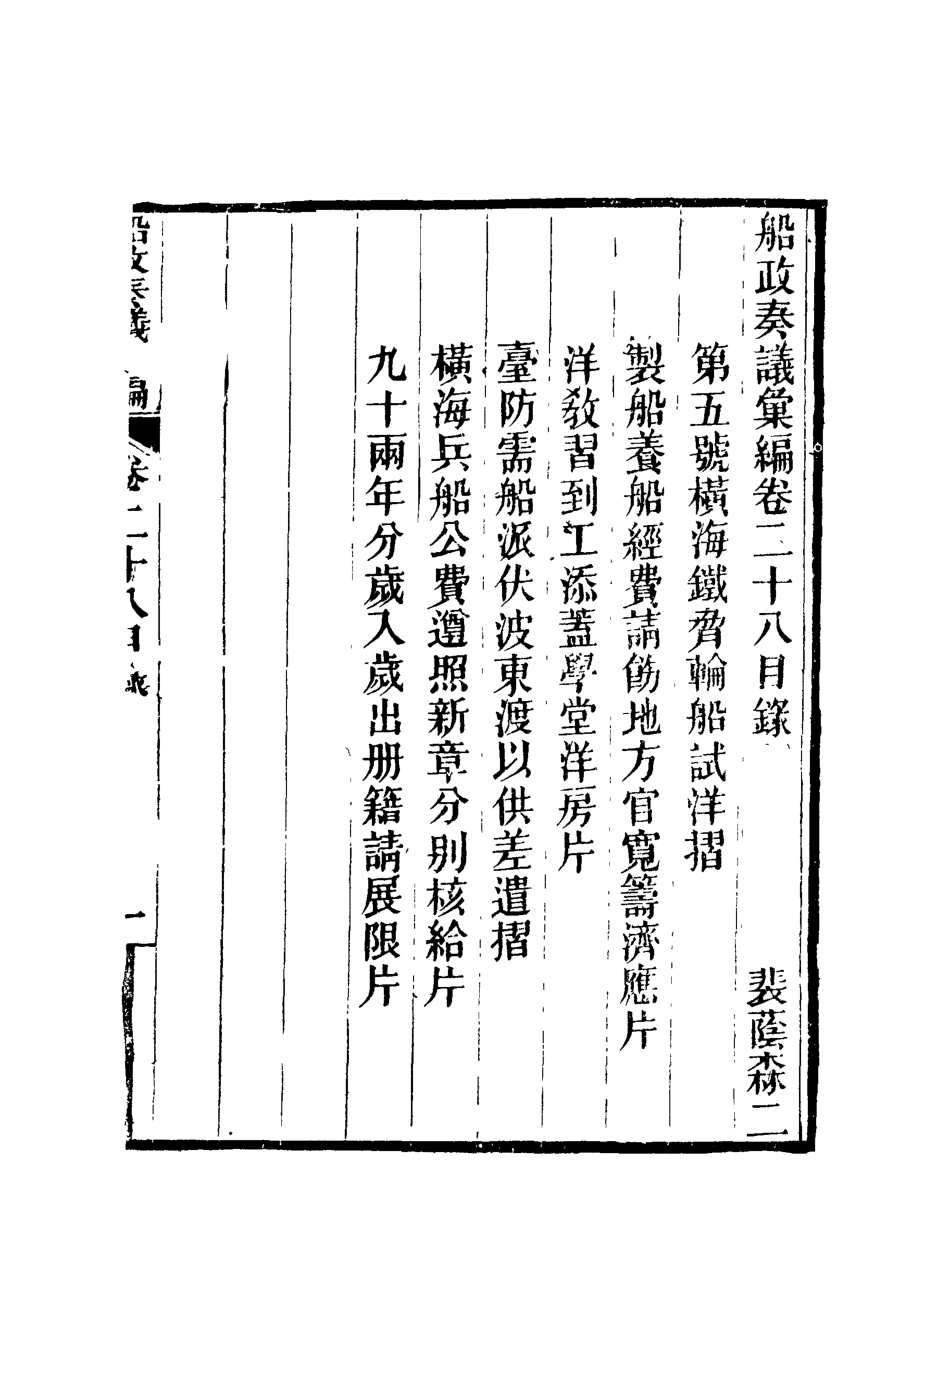 船政奏議彙編卷二十八目錄　裴蔭森二
第五號橫海鐵脅輪船試洋摺
製船養船經費請飭地方官寬籌濟應片
洋教習到工添蓋學堂洋房片
臺防需船派伏波東渡以供差遣摺
橫海兵船公費遵照新章分別核給片
九十兩年分歲入歲出册籍請展限片
船政奏議 編 卷二十八目錄 一